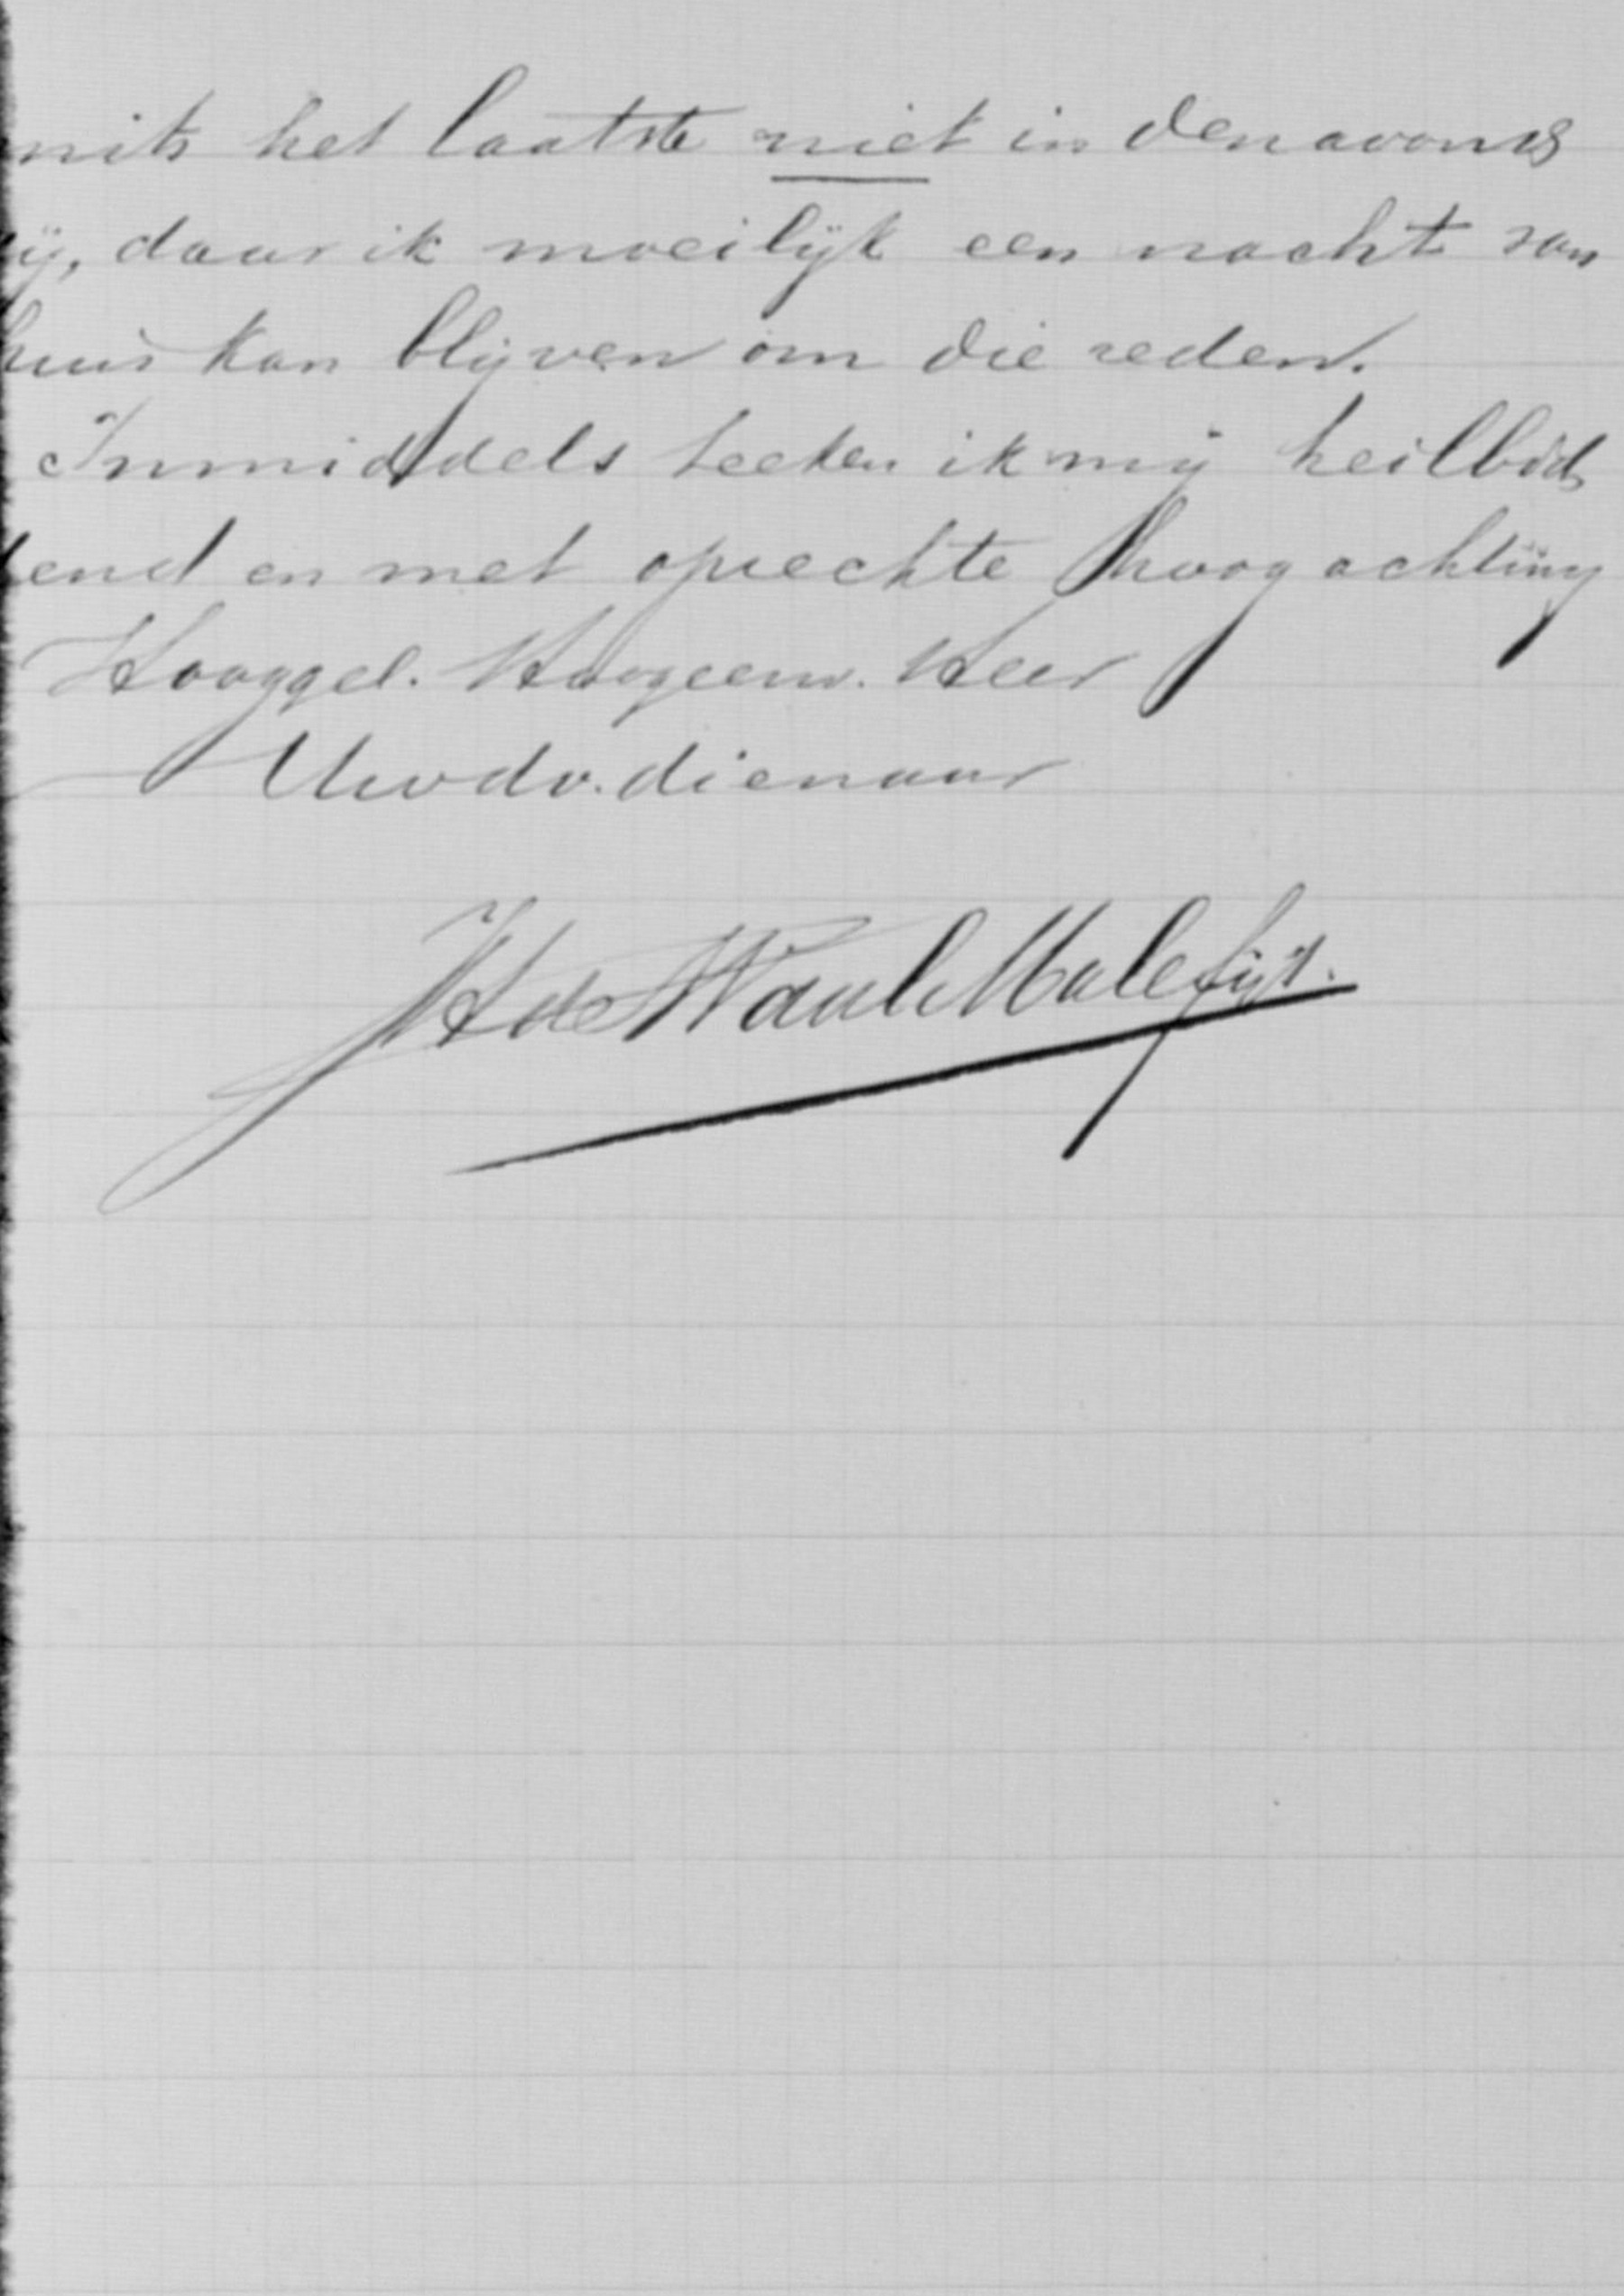 mits het laatste niet in den avond
zij, daar ik moeilijk een nacht van
huis kan blijven om die reden.
Inmiddels teeken ik mij heilbid
dend en met oprechte hoogachting
Hooggel. Hoogeerw. Heer
Uwdv. dienaar
J H de Waal Malefijt.